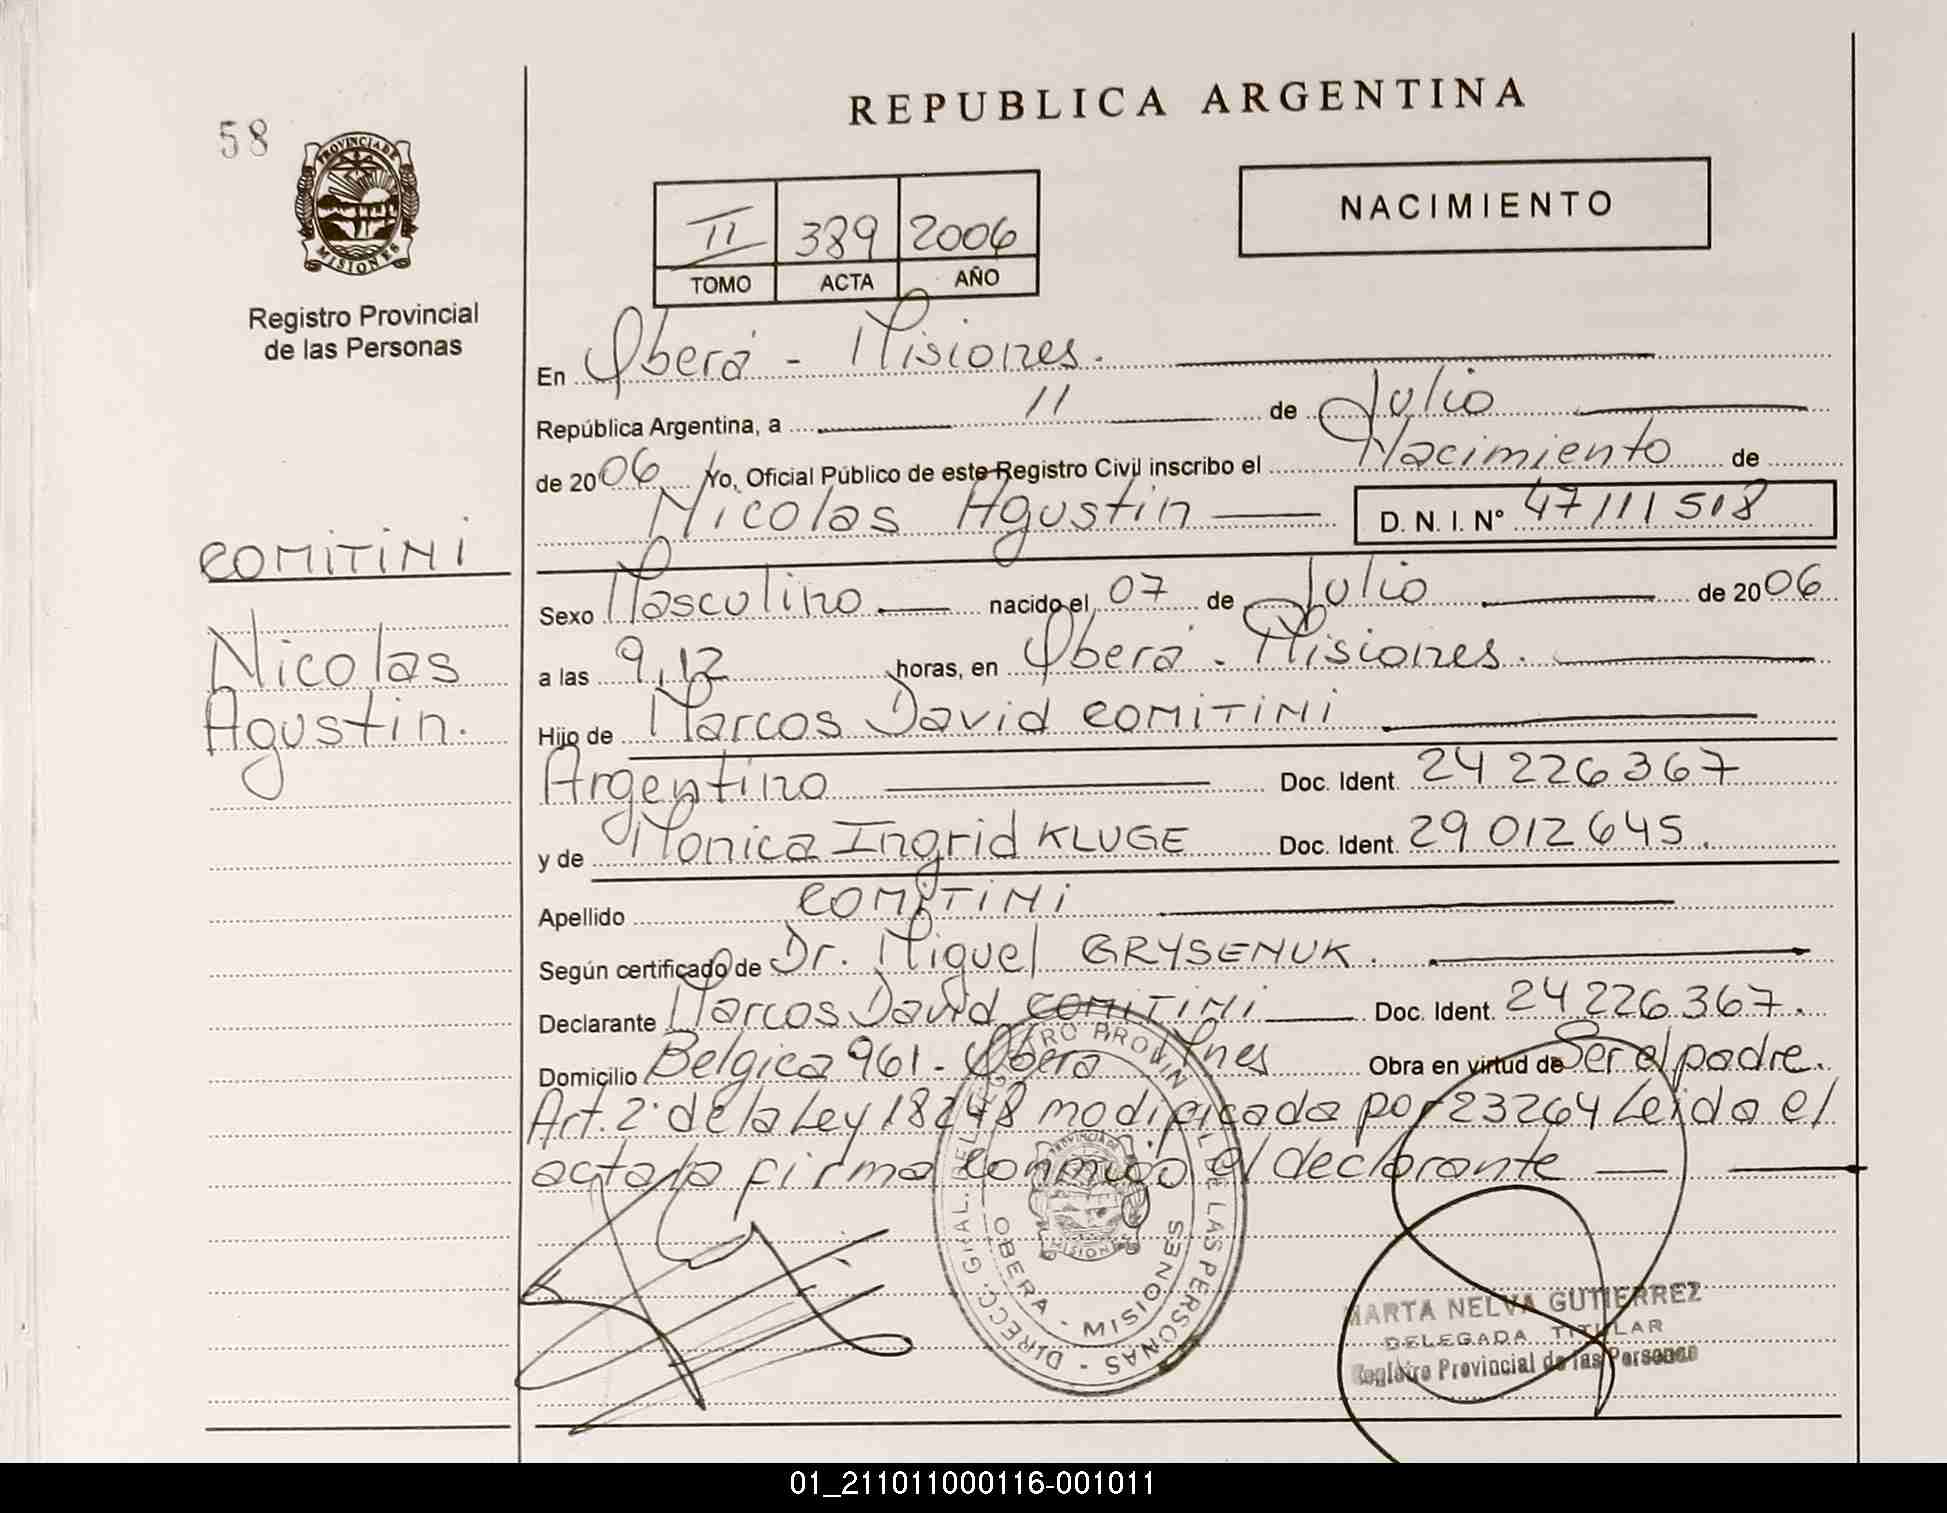 58
REPUBLICA ARGENTINA
PROVINCIA DE
MISIONES
Registro Provincial
de las Personas
II 389 2006
TOMO ACTA AÑO
NACIMIENTO
En Oberá - Misiones.
República Argentina, a 11 de Julio
de 2006 Yo, Oficial Público de este Registro Civil inscribo el Nacimiento de
Nicolas Agustin D. N. I. Nº 47111518
COMITINI
Nicolas
Agustin.
Sexo Masculino nacido el 07 de Julio de 2006
a las 9,12 horas, en Oberá - Misiones.
Hijo de Marcos David COMITINI
Argentino Doc. Ident. 24226367
y de Monica Ingrid KLUGE Doc. Ident. 29012645.
Apellido COMITINI
Según certificado de Dr. Miguel GRYSENUK.
Declarante Marcos David COMITINI Doc. Ident. 24226367.
Domicilio Belgica 961 - Oberá Mnes Obra en virtud de Ser el padre.
Art. 2º de la Ley 18248 modificada por 23264 Leida el
acta la firma conmigo el declarante
DIRECC. GRAL. DEL REGISTRO PROVINCIAL DE LAS PERSONAS -
OBERA - MISIONES
PROVINCIA DE
MISIONES
MARTA NELVA GUTIERREZ
DELEGADA TITULAR
Registro Provincial de las Personas
01_211011000116-001011